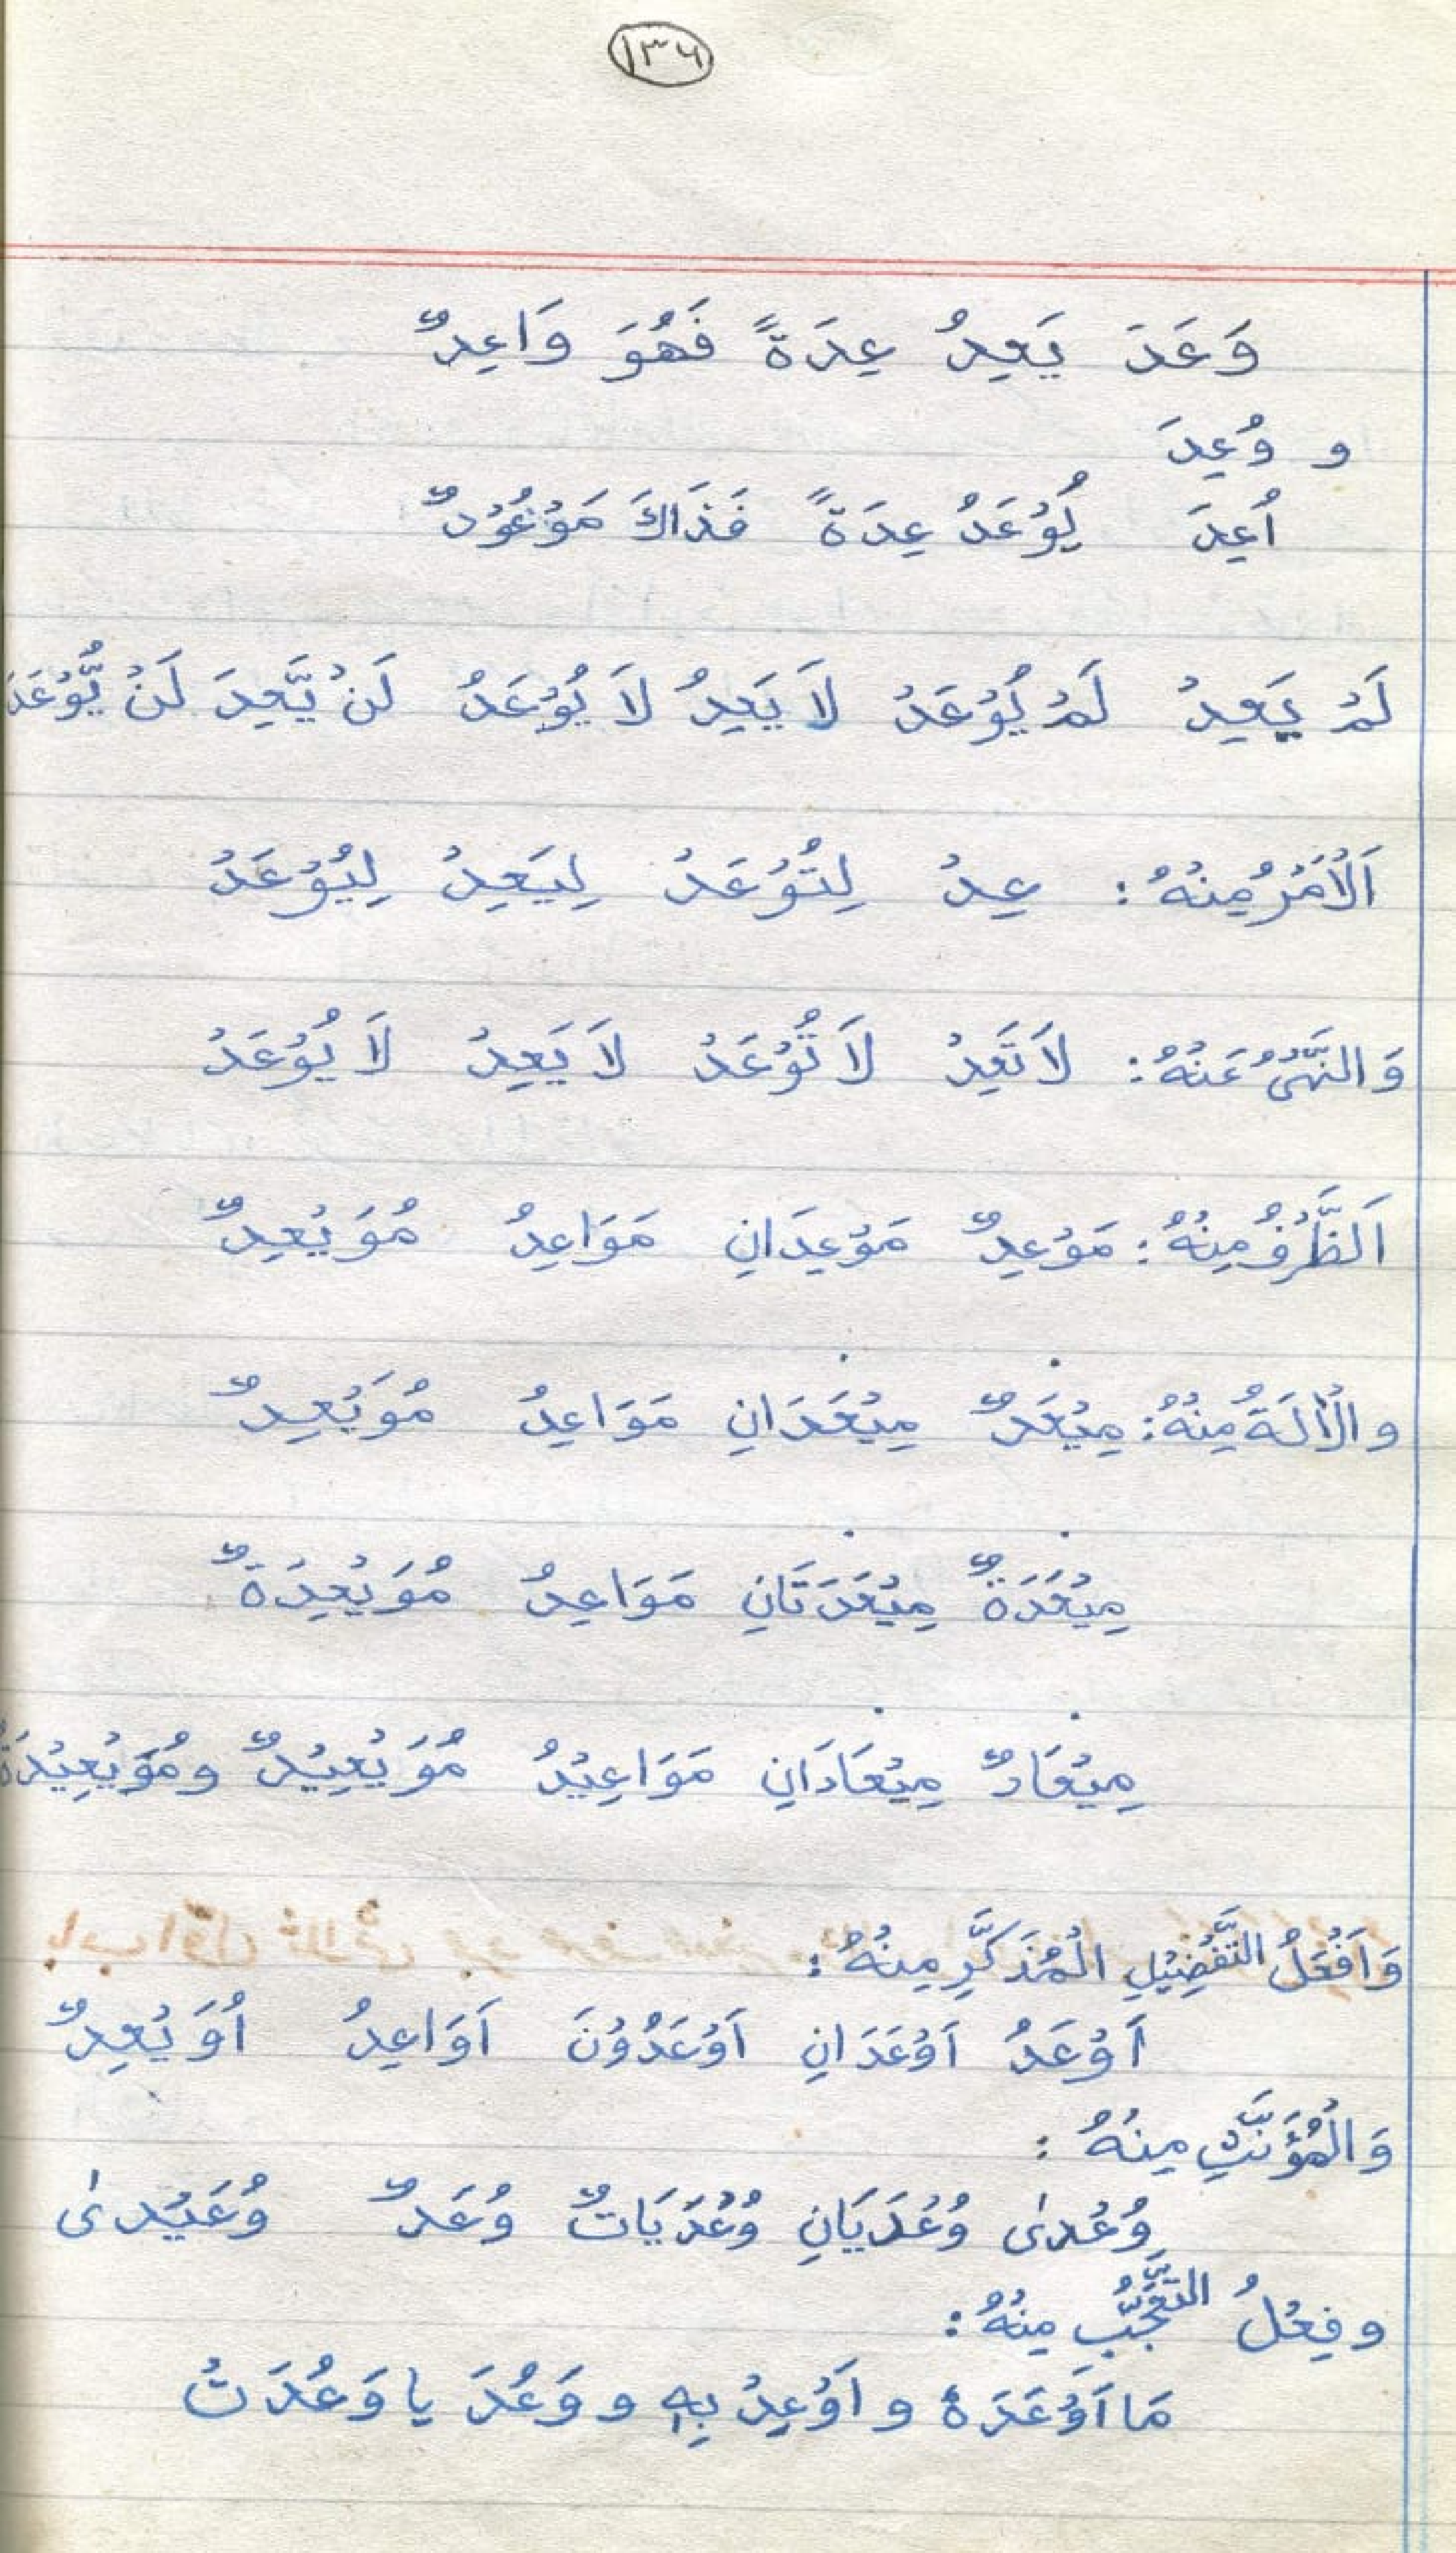 ۱۳۶
وَعَدَ يَعِدُ عِدَةً فَهُوَ وَاعِدٌ
و وُعِدَ
اُعِدَ يُوْعَدُ عِدَةً فَذَاكَ مَوْعُوْدٌ
لَمْ يَعِدْ لَمْ يُوْعَدْ لَا يَعِدُ لَا يُوْعَدُ لَنْ يَّعِدَ لَنْ يُّوْعَدَ
اَلْاَمْرُ مِنْهُ: عِدْ لِتُوْعَدْ لِيَعِدْ لِيُوْعَدْ
وَالنَّهْىُ عَنْهُ: لَا تَعِدْ لَا تُوْعَدْ لَا يَعِدْ لَا يُوْعَدْ
اَلظَّرْفُ مِنْهُ: مَوْعِدٌ مَوْعِدَانِ مَوَاعِدُ مُوَيْعِدٌ
و الْاٰلَةُ مِنْهُ: مِيْعَدٌ مِيْعَدَانِ مَوَاعِدُ مُوَيْعِدٌ
مِيْعَدَةٌ مِيْعَدَتَانِ مَوَاعِدُ مُوَيْعِدَةٌ
مِيْعَادٌ مِيْعَادَانِ مَوَاعِيْدُ مُوَيْعِيْدٌ و مُوَيْعِيْدَةٌ
وَاَفْعَلُ التَّفْضِيْلِ الْمُذَكَّرِ مِنْهُ:
اَوْعَدُ اَوْعَدَانِ اَوْعَدُوْنَ اَوَاعِدُ اُوَيْعِدٌ
وَالْمُؤَنَّثِ مِنْهُ:
وُعْدىٰ وُعْدَيَانِ وُعْدَيَاتٌ وُعَدٌ وُعَيْدىٰ
و فِعْلُ التَّعَجُّبِ مِنْهُ:
مَا اَوْعَدَهٗ و اَوْعِدْ بِهٖ و وَعُدَ يا وَعُدَتْ